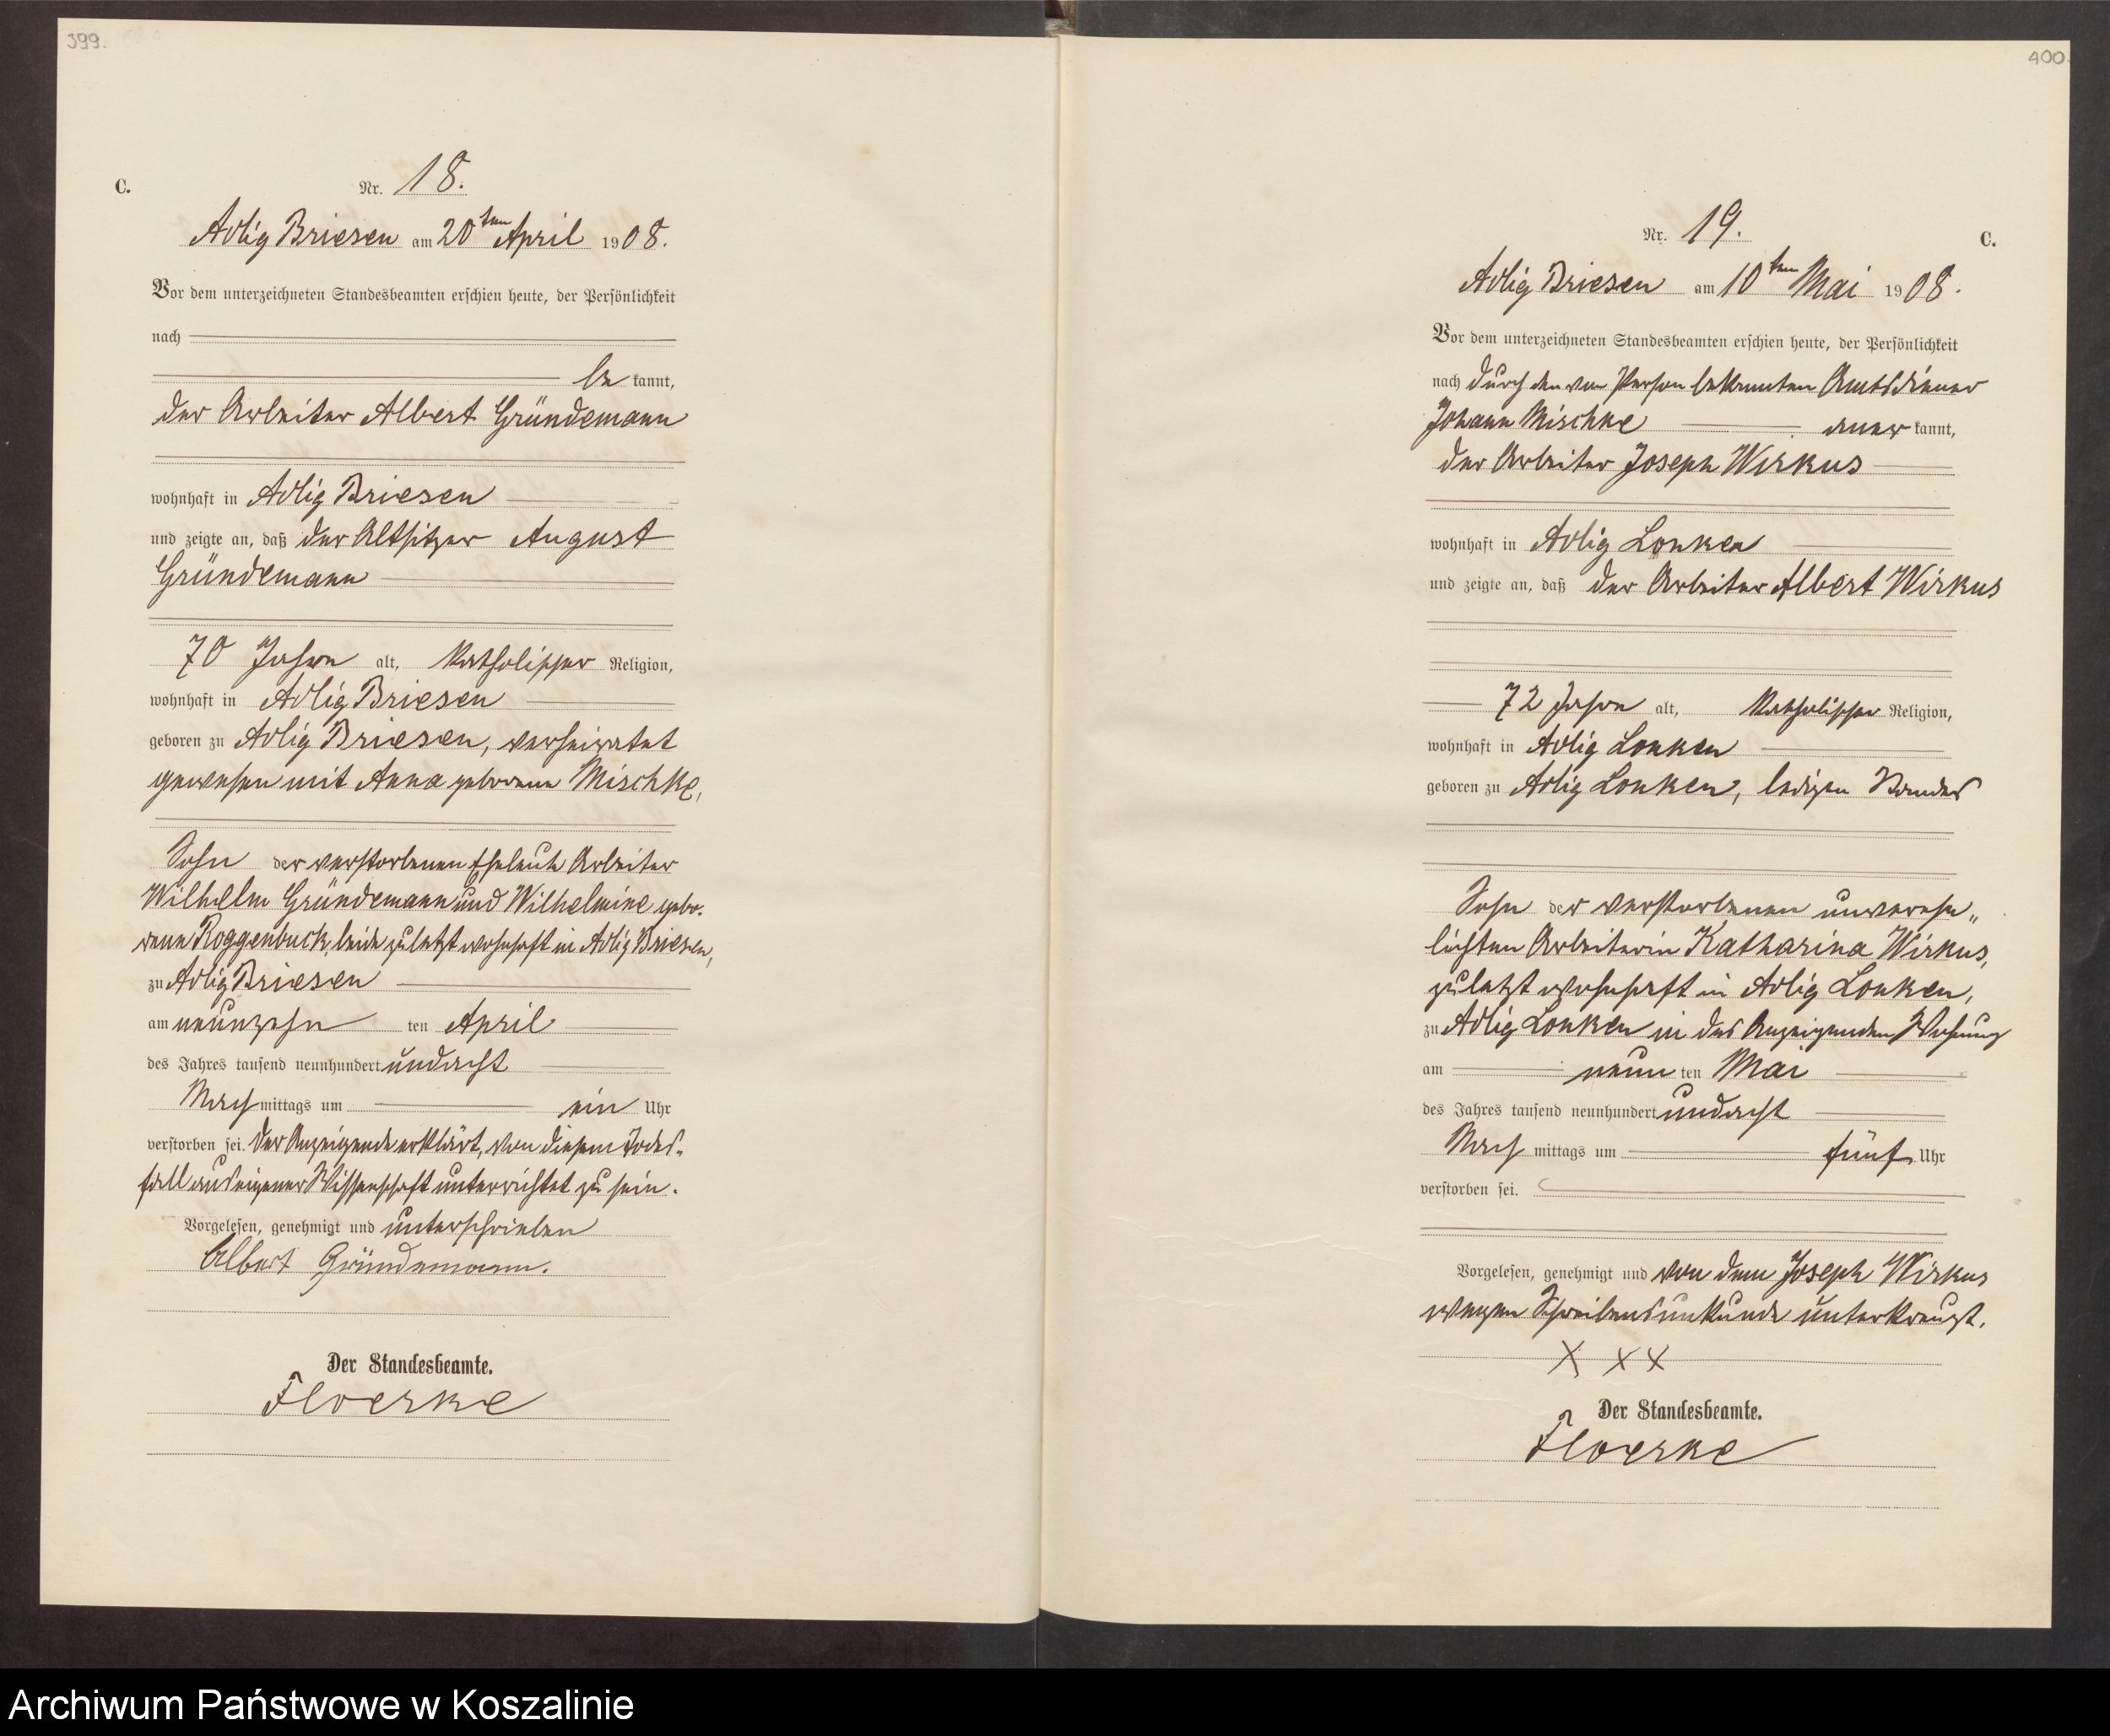 399.
C.
Nr. 18.
Adlig Briesen am 20ten April 1908.
Vor dem unterzeichneten Standesbeamten erschien heute, der Persönlichkeit
nach
be kannt,
der Arbeiter Albert Gründemann
wohnhaft in Adlig Briesen
und zeigte an, daß der Altsitzer August
Gründemann
70 Jahre alt, katholischer Religion,
wohnhaft in Adlig Briesen
geboren zu Adlig Briesen, verheiratet
gewesen mit Anna geborene Mischke,
Sohn der verstorbenen Eheleute Arbeiter
Wilhelm Gründemann und Wilhelmine gebo-
rene Roggenbuck, beide zuletzt wohnhaft in Adlig Briesen,
zu Adlig Briesen
am neunzehn ten April
des Jahres tausend neunhundert undacht
Nach mittags um ein Uhr
verstorben sei. Der Anzeigende erklärt, von diesem Todes-
fall aus eigener Wissenschaft unterrichtet zu sein.
Vorgelesen, genehmigt und unterschrieben
Albert Gründemann.
Der Standesbeamte.
Floerke
400.
Nr. 19.
C.
Adlig Briesen am 10ten Mai 1908.
Vor dem unterzeichneten Standesbeamten erschien heute, der Persönlichkeit
nach durch den von Person bekannten Amtsdiener
Johann Mischke aner kannt,
der Arbeiter Joseph Wirkus
wohnhaft in Adlig Lonken
und zeigte an, daß der Arbeiter Albert Wirkus
72 Jahre alt, katholischer Religion,
wohnhaft in Adlig Lonken
geboren zu Adlig Lonken, ledigen Standes
Sohn der verstorbenen unverehe„
lichten Arbeiterin Katharina Wirkus,
zuletzt wohnhaft in Adlig Lonken,
zu Adlig Lonken in des Anzeigenden Wohnung
am neun ten Mai
des Jahres tausend neunhundert undacht
Nach mittags um fünf Uhr
verstorben sei.
Vorgelesen, genehmigt und von dem Joseph Wirkus
wegen Schreibensunkunde unterkreuzt.
X X X
Der Standesbeamte.
Floerke
Archiwum Państwowe w Koszalinie